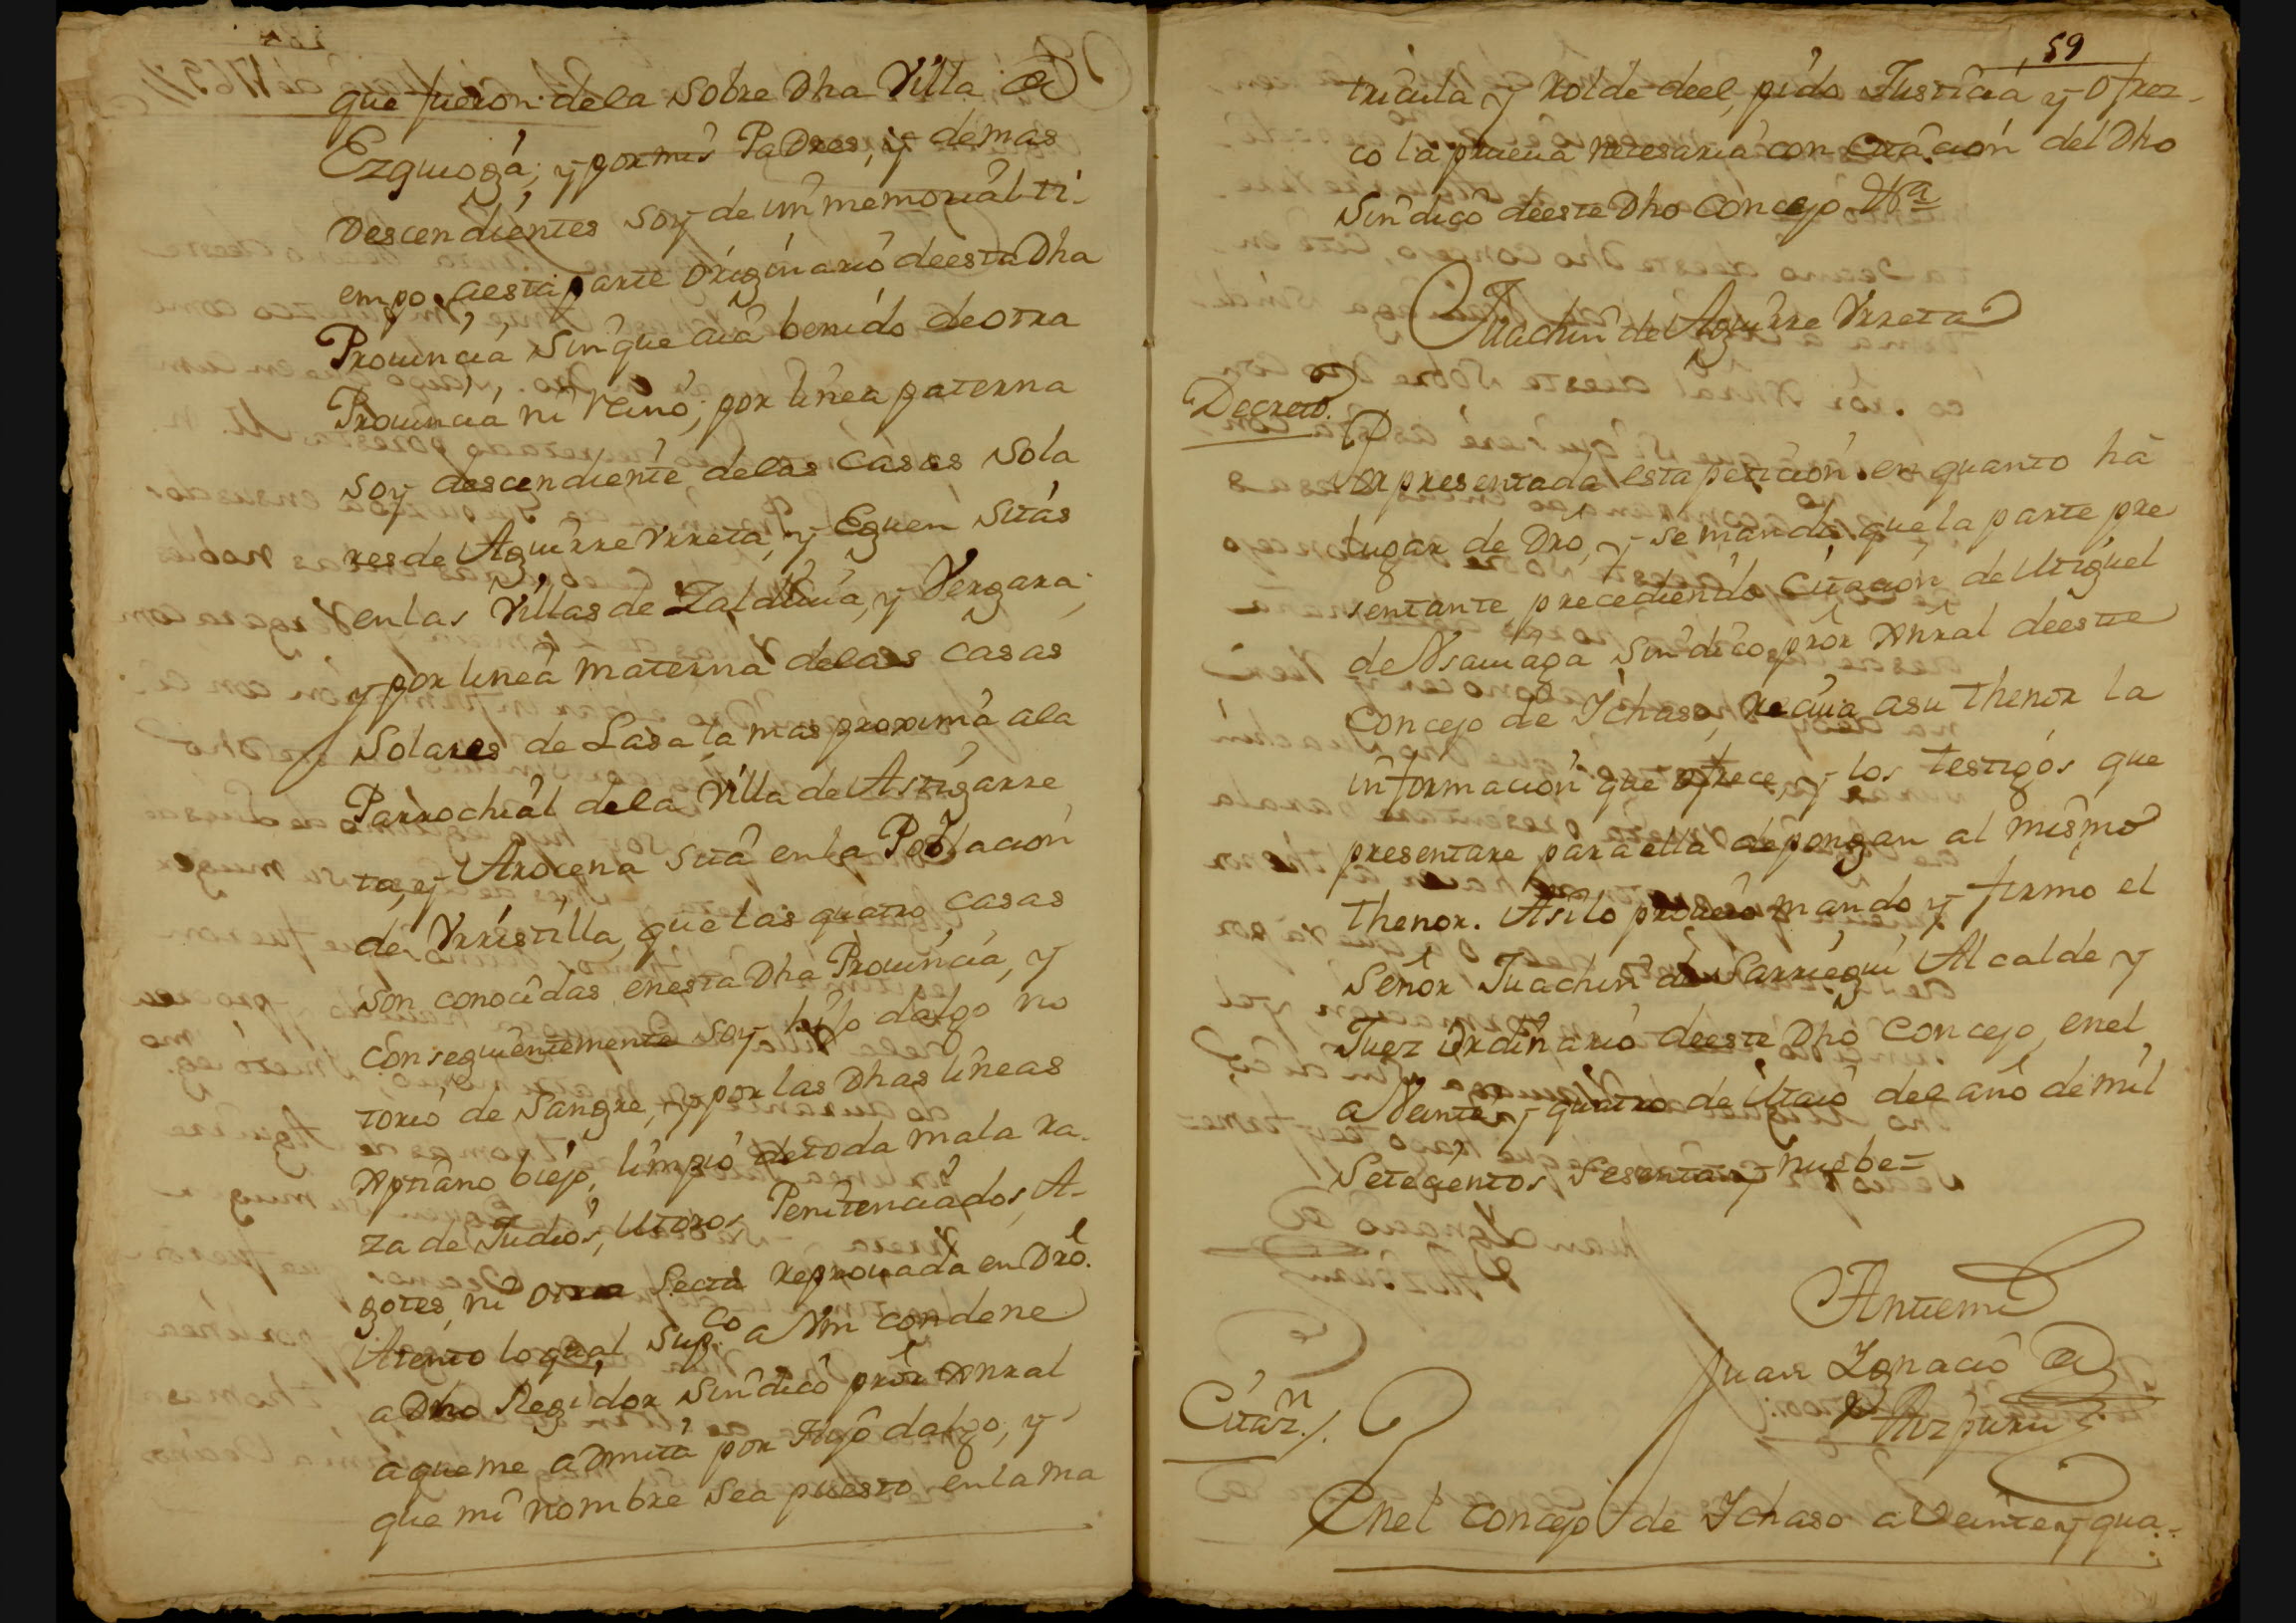 que fueron dela Sobre Dha Villa de
Ezquioga; y por mis Padres, y demas
Descendientes soy de un memorial ti-
empo aesta parte originario deesta Dha
Prouincia sin que aia benido de otra
Prouincia ni Reino; por linea paterna
soy descendiente delas Casas Sola
res de Aguirre Vrreta, y Eguen Sitas
en las Villas de Zaldiuia, y Vergara;
y por linea materna delas casas
Solares de Lasa la mas proxima ala
Parrochial dela Villa de Astigarre
ta, y Arocena sita en la Poblacion
de Vrrestilla, que las quatro casas
son conocidas enesta Dha Prouincia, y
conseguientemente soy hijo dalgo no
torio de Sangre, y por las Dhas lineas
Xptiano biejo, limpio de toda mala ra-
za de Judios, Moros, Penitenciados, A-
gotes, ni otra Secta reprouada en Dro.
Atento lo qual sup.co a Vm condene
a Dho Regidor Sindico pror Gnral
a que me admita por Hijo dalgo, y
que mi nombre sea puesto en la ma
59
tricula y Rolde deel, pido Justicia, y ofrez-
co la prueua necesaria con citacion del Dho
Sindico deeste Dho Concejo
Juachin de Aguirre Vrreta
Decreto.
Por presentada esta peticion en quanto ha
lugar de Dro, y se manda que la parte pre
sentante precediendo Citacion de Miguel
de Vsauiaga Sindico pror Gnral deeste
Concejo de Ichaso, reciua asu thenor la
informacion que ofrece, y los testigos que
presentare para ella depongan al mismo
thenor. Asilo proueio mando y firmo el
Señor Juachin de Sarriegui Alcalde y
Juez ordinario deeste Dho Concejo, enel
a Veinte y quatro de Maio del año de mil
Setecientos Sesenta y nuebe=
Antemi
Juan Ignacio de
Aizpuru
Citaz.n/.
Enel Concejo de Ichaso a Veinte y qua-